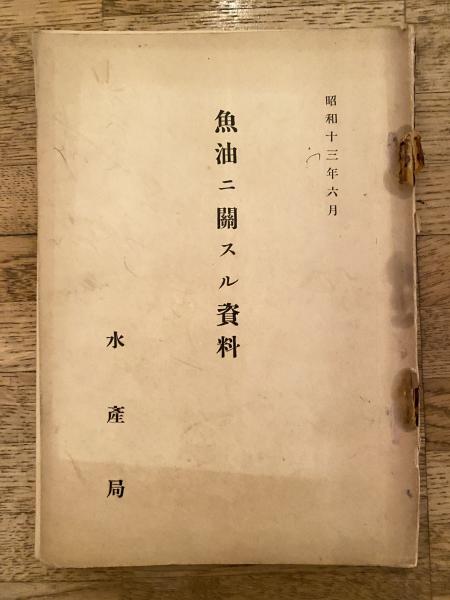 昭和十三年六月
魚油ニ關スル資料
水產局